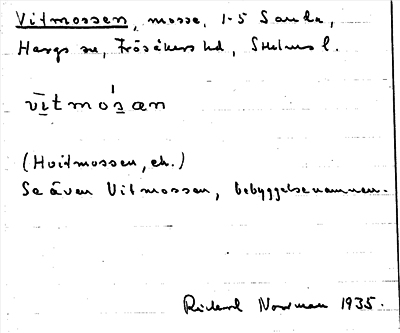 Vitmossen, mosse, 1-5 Sanda,
Hargs sn, Frösåkers hd, Sthlms l.
vi̲tmos̲an
(Hvitmossen, ek.)
Se även Vitmossen, bebyggelsenamnen.
Rickard Norrman 1935.